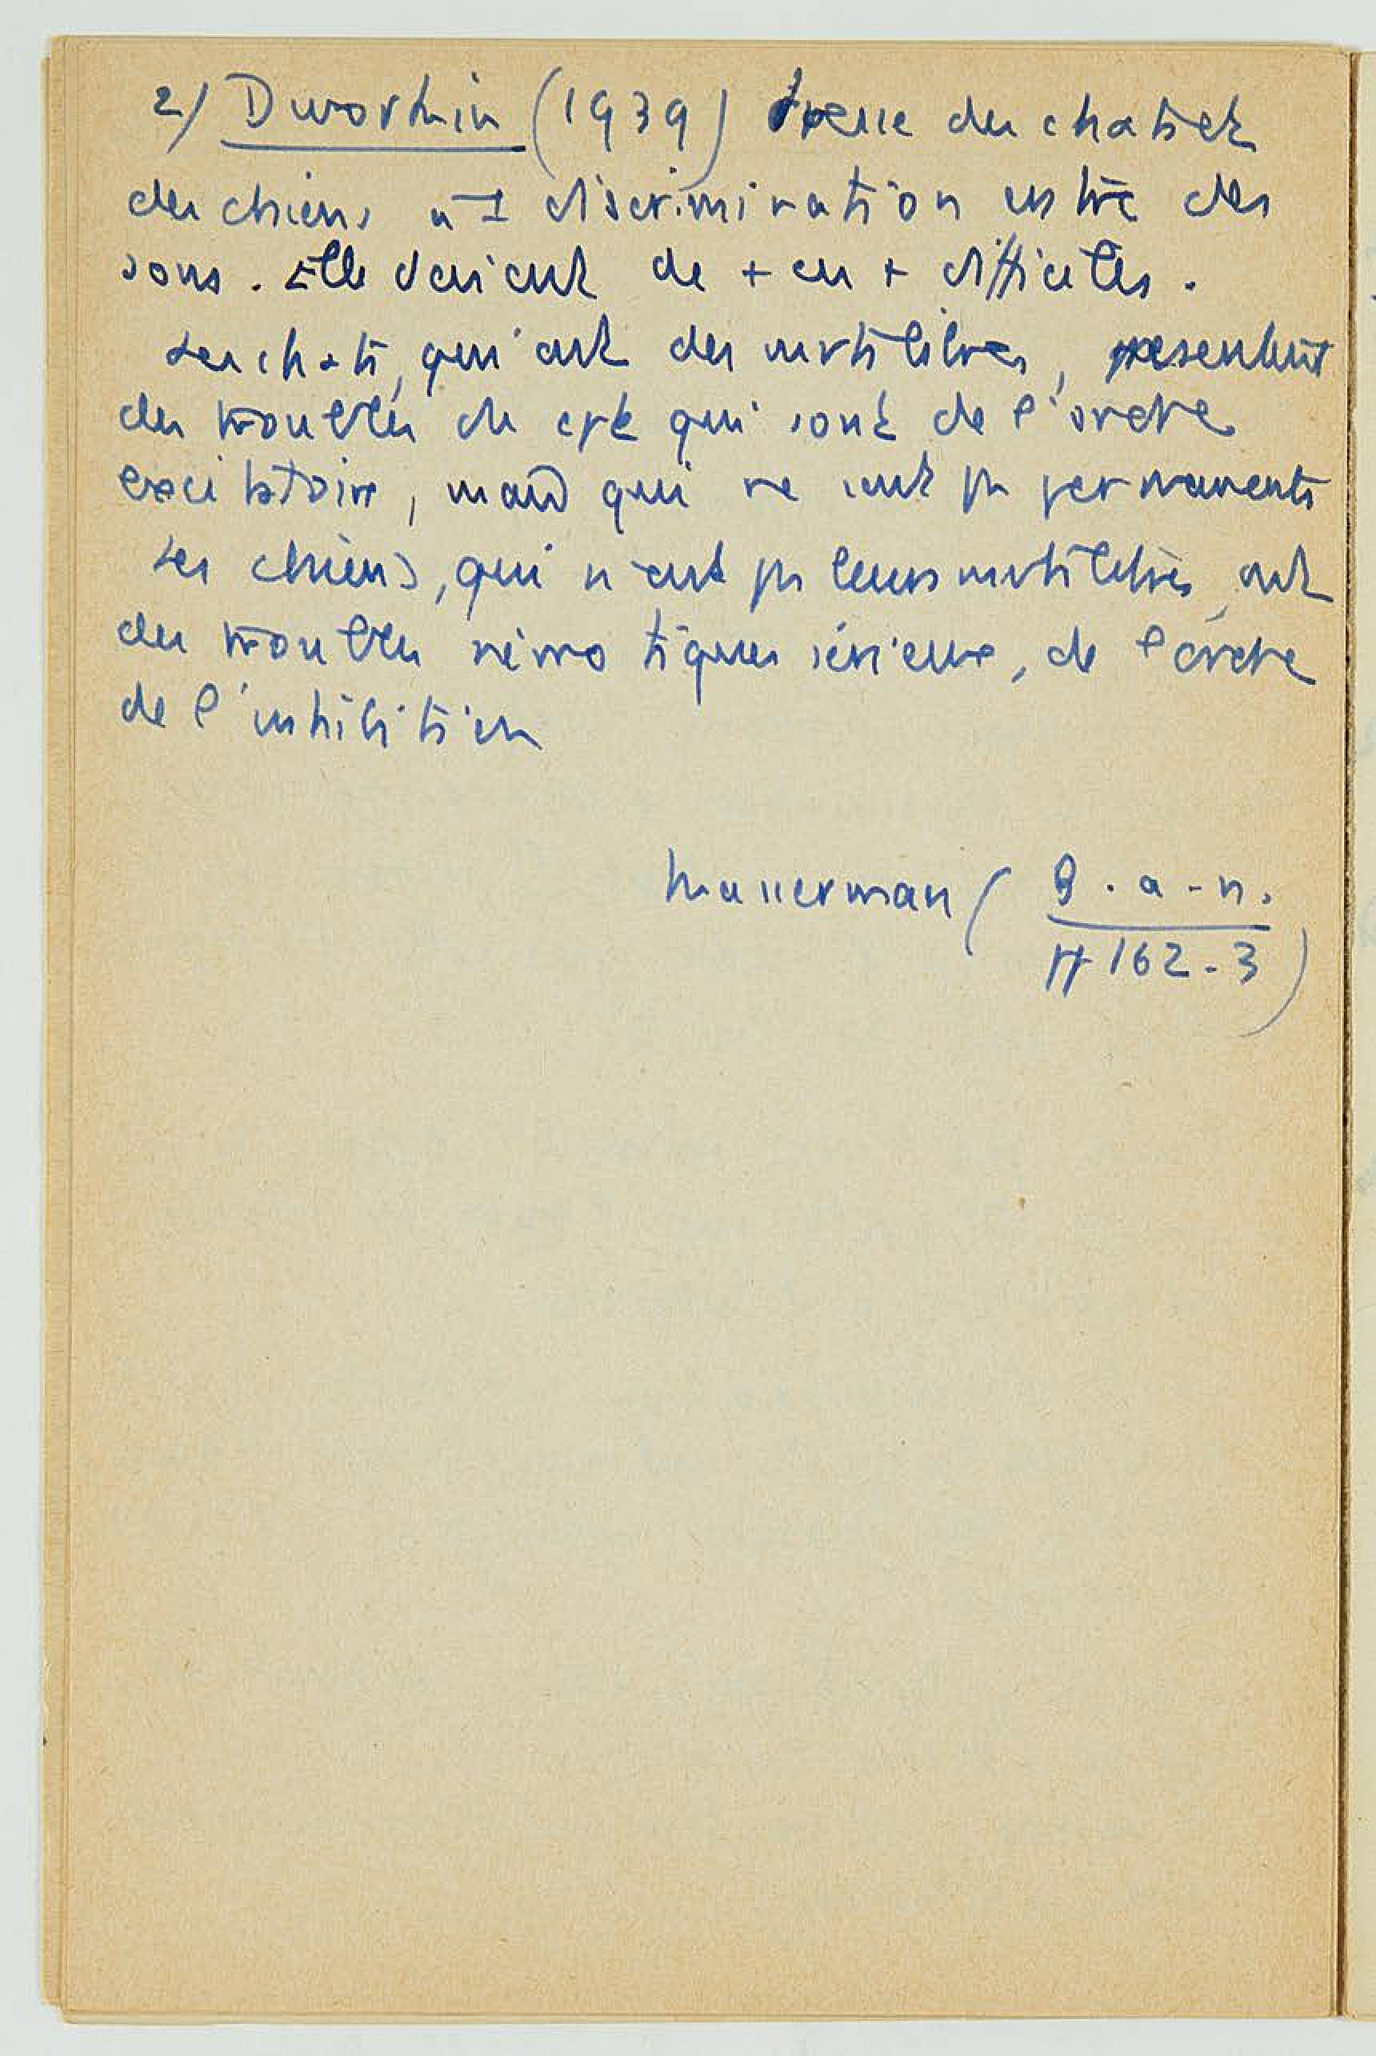 2/ Dworkin (1939) dresse des chats et
des chiens à 1 discrimination entre des
sons. Elle devient de + en + difficiles.
Les chats, qui ont des mobilités, présentent
des troubles du cpt qui sont de l'ordre
excitatoire, mais qui ne sont pas permanents
Les chiens, qui n'ont pas leurs mobilités, ont
des troubles névrotiques sérieux, de l'ordre
de l'inhibition
Masserman ( B. a-n.
pp 162-3 )